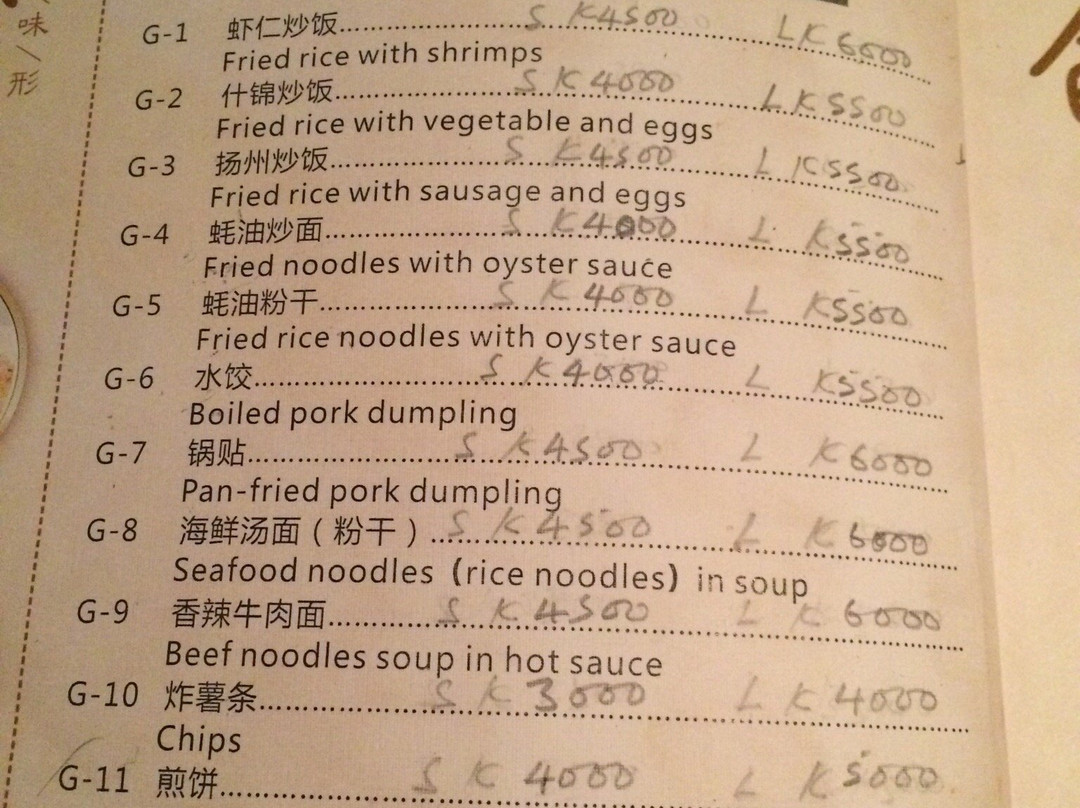 味
形
G-1 虾仁炒饭 S K4500 L K6000
Fried rice with shrimps
G-2 什锦炒饭 S K4000 L K5500
Fried rice with vegetable and eggs
G-3 扬州炒饭 S K4500 L K5500
Fried rice with sausage and eggs
G-4 蚝油炒面 S K4000 L K5500
Fried noodles with oyster sauce
G-5 蚝油粉干 S K4000 L K5500
Fried rice noodles with oyster sauce
G-6 水饺 S K4000 L K5500
Boiled pork dumpling
G-7 锅贴 S K4500 L K6000
Pan-fried pork dumpling
G-8 海鲜汤面（粉干） S K4500 L K6000
Seafood noodles (rice noodles) in soup
G-9 香辣牛肉面 S K4500 L K6000
Beef noodles soup in hot sauce
G-10 炸薯条 S K3000 L K4000
Chips
G-11 煎饼 S K4000 L K5000